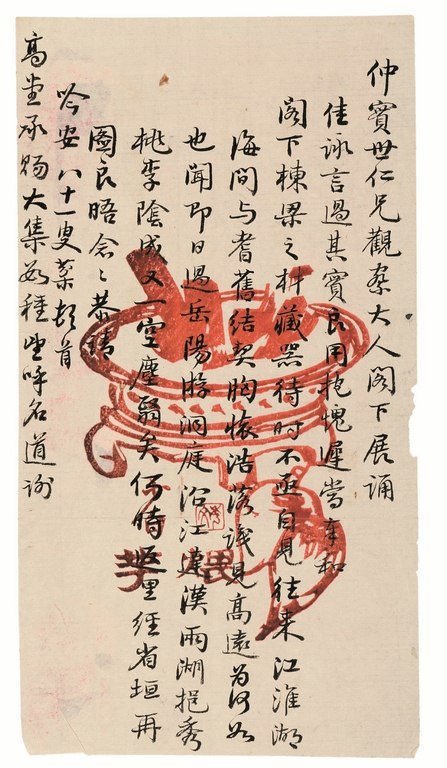 仲實世仁兄觀察大人閣下展誦
佳詠言過其實良用抱愧遲當奉和
閣下棟梁之材藏器待時不亟自見往來江淮湖
海間与耆舊結契胸懷浩落識見高遠為何如
也聞即日過岳陽游洞庭沿江達漢兩湖挹秀
桃李陰成又一空塵翳矣何時返里經省垣再
圖良晤念念恭請
吟安八十一叟頓首
高堂承賜大集各種坐呼名道謝